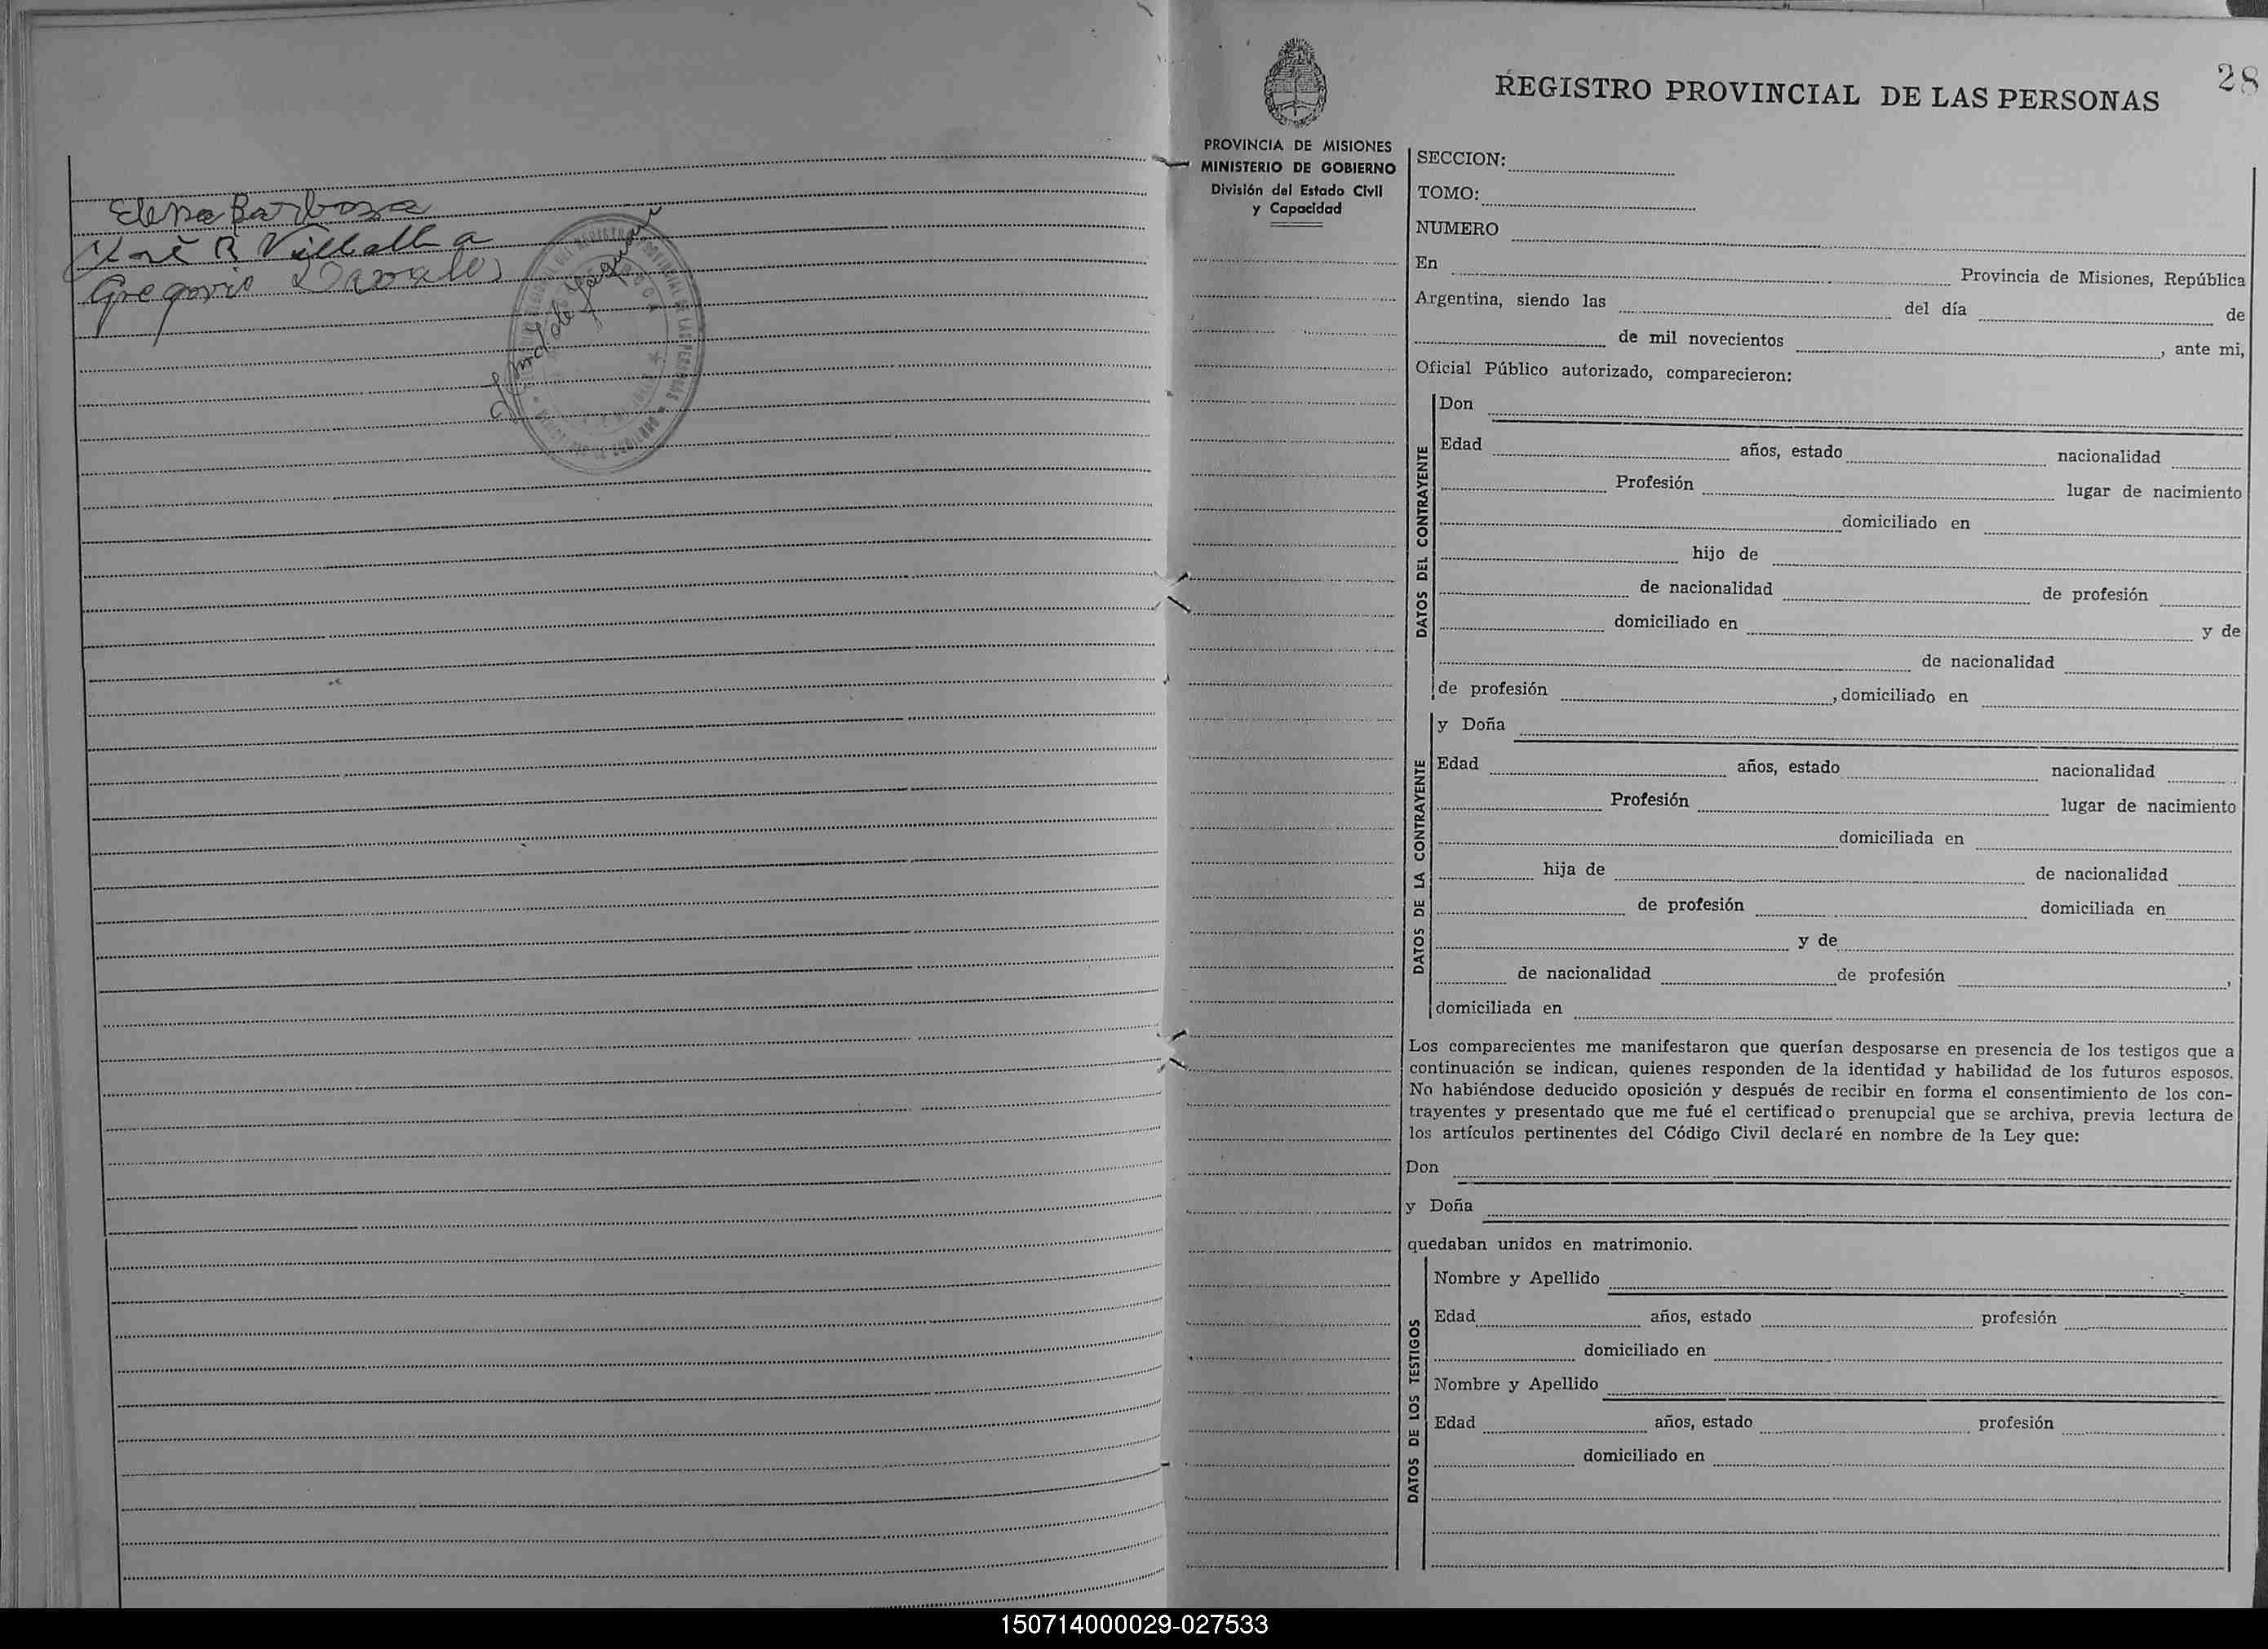 Elena Barboza
José R Villalba
Gregorio
28
REGISTRO PROVINCIAL DE LAS PERSONAS
PROVINCIA DE MISIONES
MINISTERIO DE GOBIERNO
División del Estado Civil
y Capacidad
SECCION:
TOMO:
NUMERO
En Provincia de Misiones, República
Argentina, siendo las del día de
de mil novecientos , ante mi,
Oficial Público autorizado, comparecieron:
DATOS DEL CONTRAYENTE
Don
Edad años, estado nacionalidad
Profesión lugar de nacimiento
domiciliado en
hijo de
de nacionalidad de profesión
domiciliado en y de
de nacionalidad
de profesión , domiciliado en
DATOS DE LA CONTRAYENTE
y Doña
Edad años, estado nacionalidad
Profesión lugar de nacimiento
domiciliada en
hija de de nacionalidad
de profesión domiciliada en
y de
de nacionalidad de profesión ,
domiciliada en
Los comparecientes me manifestaron que querían desposarse en presencia de los testigos que a
continuación se indican, quienes responden de la identidad y habilidad de los futuros esposos.
No habiéndose deducido oposición y después de recibir en forma el consentimiento de los con-
trayentes y presentado que me fué el certificado prenupcial que se archiva, previa lectura de
los artículos pertinentes del Código Civil declaré en nombre de la Ley que:
Don
y Doña
quedaban unidos en matrimonio.
DATOS DE LOS TESTIGOS
Nombre y Apellido
Edad años, estado profesión
domiciliado en
Nombre y Apellido
Edad años, estado profesión
domiciliado en
150714000029-027533